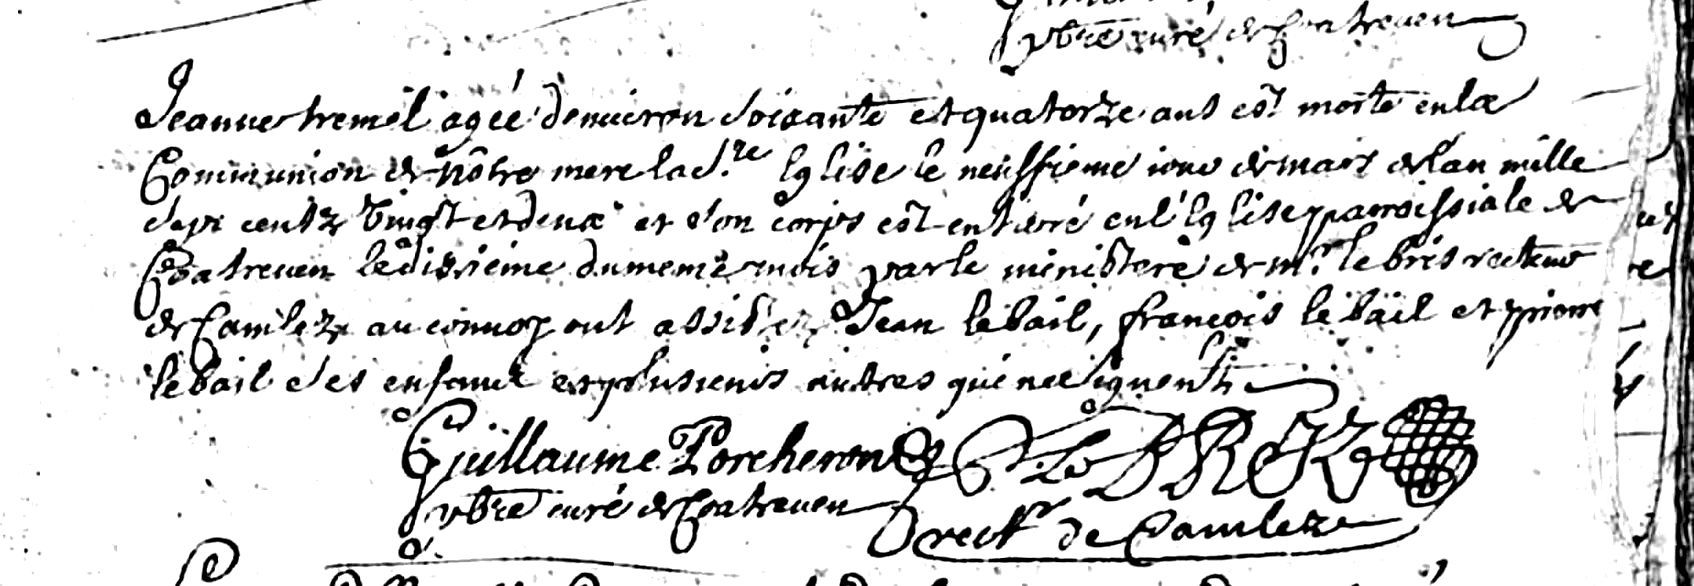 pbre curé de Coatreven
Jeanne tremel agée denuiron soixante et quatorze ans est morte en la
Communion de nôtre mere la s.te Eglise le neuffieme iour de mars de lan mille
sept centz vingt et deux et son corps est enterré en l'Eglise parroissiale de
Coatreven le dixiéme du meme mois par le ministere de mr. le bris recteur
de Camlez au conuoy ont assistez Jean le bail, francois le bail et pierre
le bail ses enfants et plusieurs autres qui ne signent
Guillaume Porcheron Le BRIZ
pbre curé de Coatreven rectr de Camlez